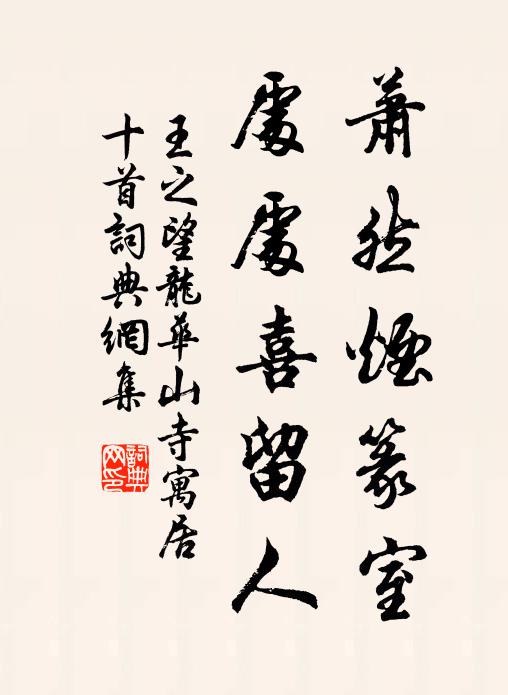 蕭然煙篆室
處處喜留人
王之望龍華山寺寓居
十首詞典網集
詞典
网印